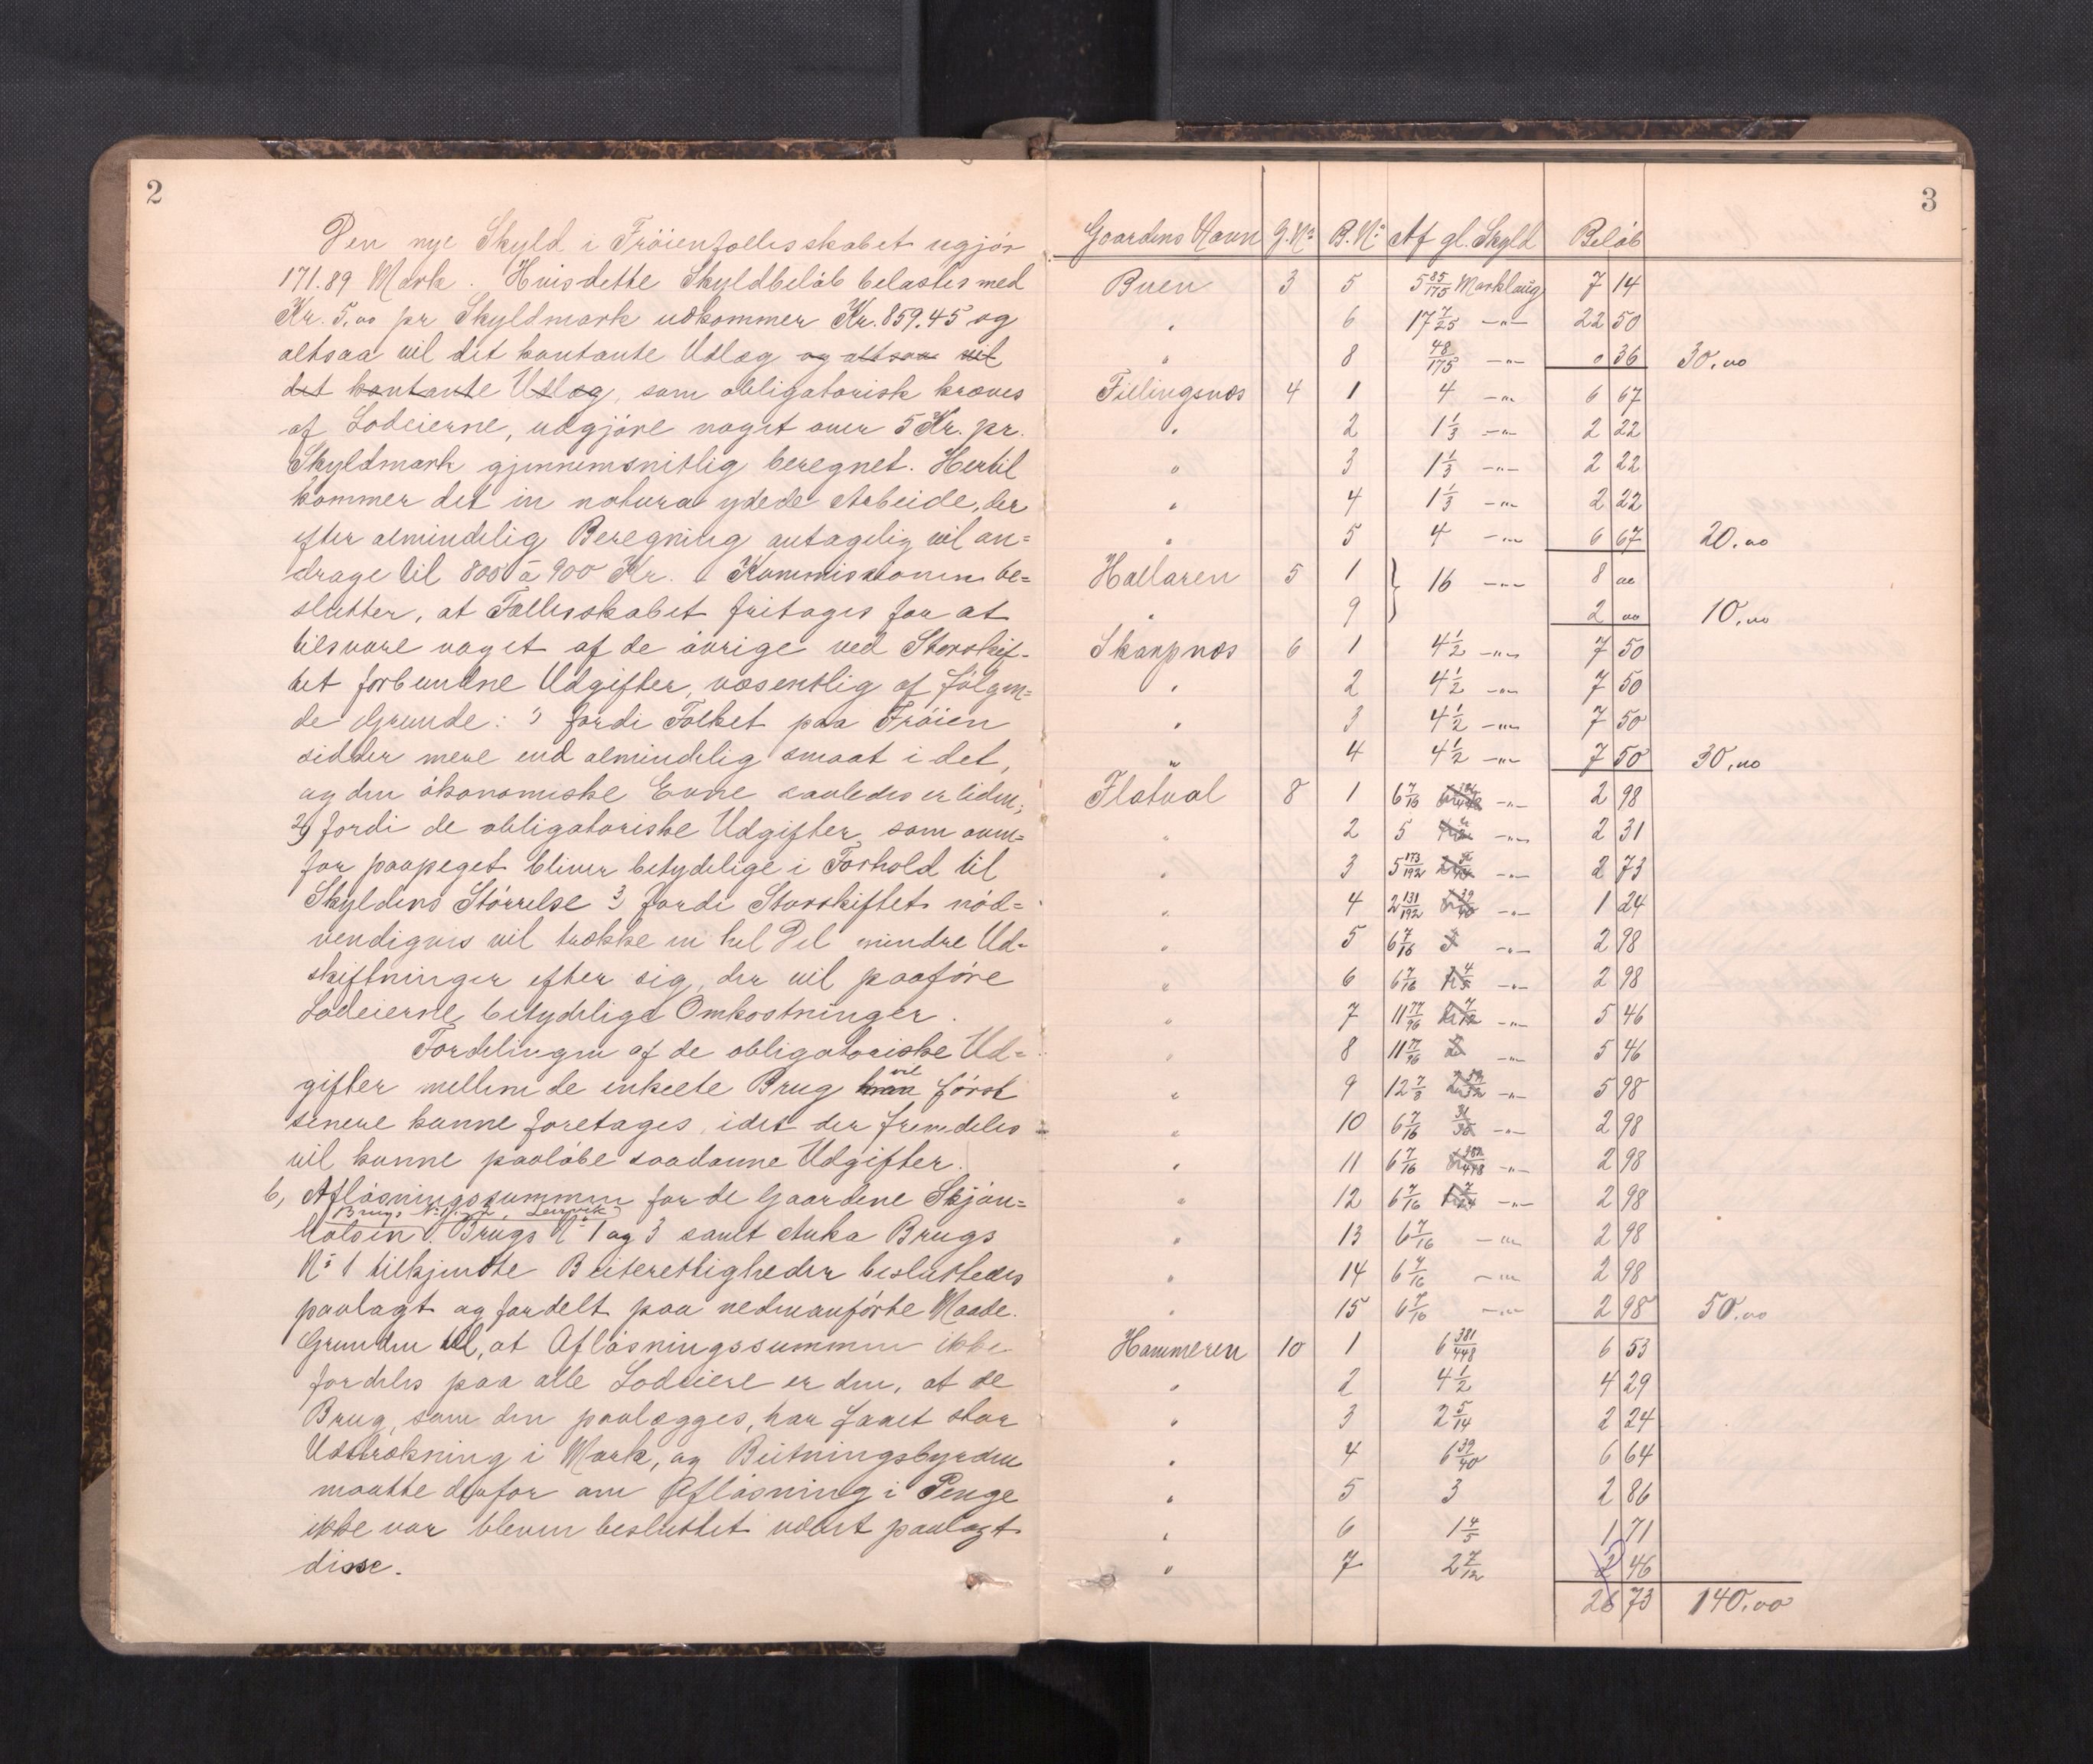 2
Den nye Skyld i Fröienfællesskabet ugjör
171.89 Mark. Hvis dette Skyldbelöb belastes med
Kr. 5,00 pr Skyldmark udkommer Kr. 859.45 og
altsaa vil det kontante Udlæg og altsaa vil
det kontante Udlæg, som obligatorisk kræves
af Lodeierne, udgjöre noget over 5 Kr. pr.
Skyldmark gjennemsnitlig beregnet. Hertil
kommer det in natura ydede Arbeide, der
efter almindelig Beregning antagelig vil an=
drage til 800 à 900 Kr. Kommissionen be=
slutter, at Fællesskabet fritages for at
tilsvare noget af de övrige ved Storskif-
tet forbundne Udgifter, væsentlig af fölgen=
de Grunde: 1) fordi Folket paa Fröien
sidder mere end almindelig smaat i det,
og den ökonomiske Evne saaledes er liden;
2) fordi de obligatoriske Udgifter, som oven=
for paapeget bliver betydelige i Forhold til
Skyldens Störrelse 3) fordi Storskiftet nöd=
vendigvis vil trække en hel Del mindre Ud-
skiftninger efter sig, der vil paaföre
Lodeierne betydelige Omkostninger.
Fordelingen af de obligatoriske Ud=
gifter mellem de enkelte Brug kan vil först
senere kunne foretages, idet der fremdeles
vil kunne paalöbe saadanne Udgifter.
b, Aflösningssummen for de Gaardene Skjön=
Brugs No 1 2, Leirvik
holsen Brugs No 1 og 3 samt Auka Brugs
No 1 tilkjendte Beiterettigheder besluttedes
paalagt og fordelt paa nedenanförte Maade.
Grunden til, at Aflösningssummen ikke
fordeles paa alle Lodeiere er den, at de
Brug, som den paalægges, har faaet stor
Udstrækning i Mark, og Beitningsbyrden
maatte derfor om Aflösning i Penge
ikke var bleven besluttet været paalagt
disse.
3
Gaardens Navn G.No B.No Af gl. Skyld Belöb
Buen 3 5 5 85/175 Marklaug 7 14
" 6 17 7/25 -"- 22 50
" 8 48/175 -"- 0 36 30,00
Fillingsnæs 4 1 4 -"- 6 67
" 2 1 1/3 -"- 2 22
" 3 1 1/3 -"- 2 22
" 4 1 1/3 -"- 2 22
" 5 4 -"- 6 67 20,00
Hallaren 5 1 } 16 -"- 8 00
" 9 } 2 00 10,00
Skarpnæs 6 1 4 1/2 -"- 7 50
" 2 4 1/2 -"- 7 50
" 3 4 1/2 -"- 7 50
" 4 4 1/2 -"- 7 50 30,00
Flatval 8 1 6 7/16 -"- 2 98
" 2 5 -"- 2 31
" 3 5 173/192 -"- 2 73
" 4 2 131/192 39/40 -"- 1 24
" 5 6 7/16 3 -"- 2 98
" 6 6 7/16 1 4/5 -"- 2 98
" 7 11 77/96 2 7/12 -"- 5 46
" 8 11 77/96 -"- 5 46
" 9 12 7/8 -"- 5 98
" 10 6 7/16 -"- 2 98
" 11 6 7/16 -"- 2 98
" 12 6 7/16 -"- 2 98
" 13 6 7/16 -"- 2 98
" 14 6 7/16 -"- 2 98
" 15 6 7/16 -"- 2 98 50,00
Hammeren 10 1 6 381/448 6 53
" 2 4 1/2 4 29
" 3 2 5/14 2 24
" 4 6 39/40 6 64
" 5 3 2 86
" 6 1 4/5 1 71
" 7 2 7/12 2 46
26 73 140,00